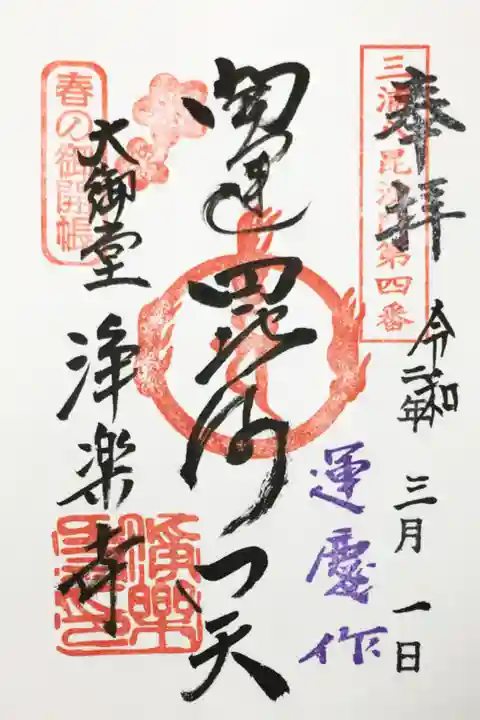 奉拝
三浦七毘沙門第四番
令和二年
三月一日
運慶作
勝運毘沙門天
春の御開帳
大御堂
浄楽寺